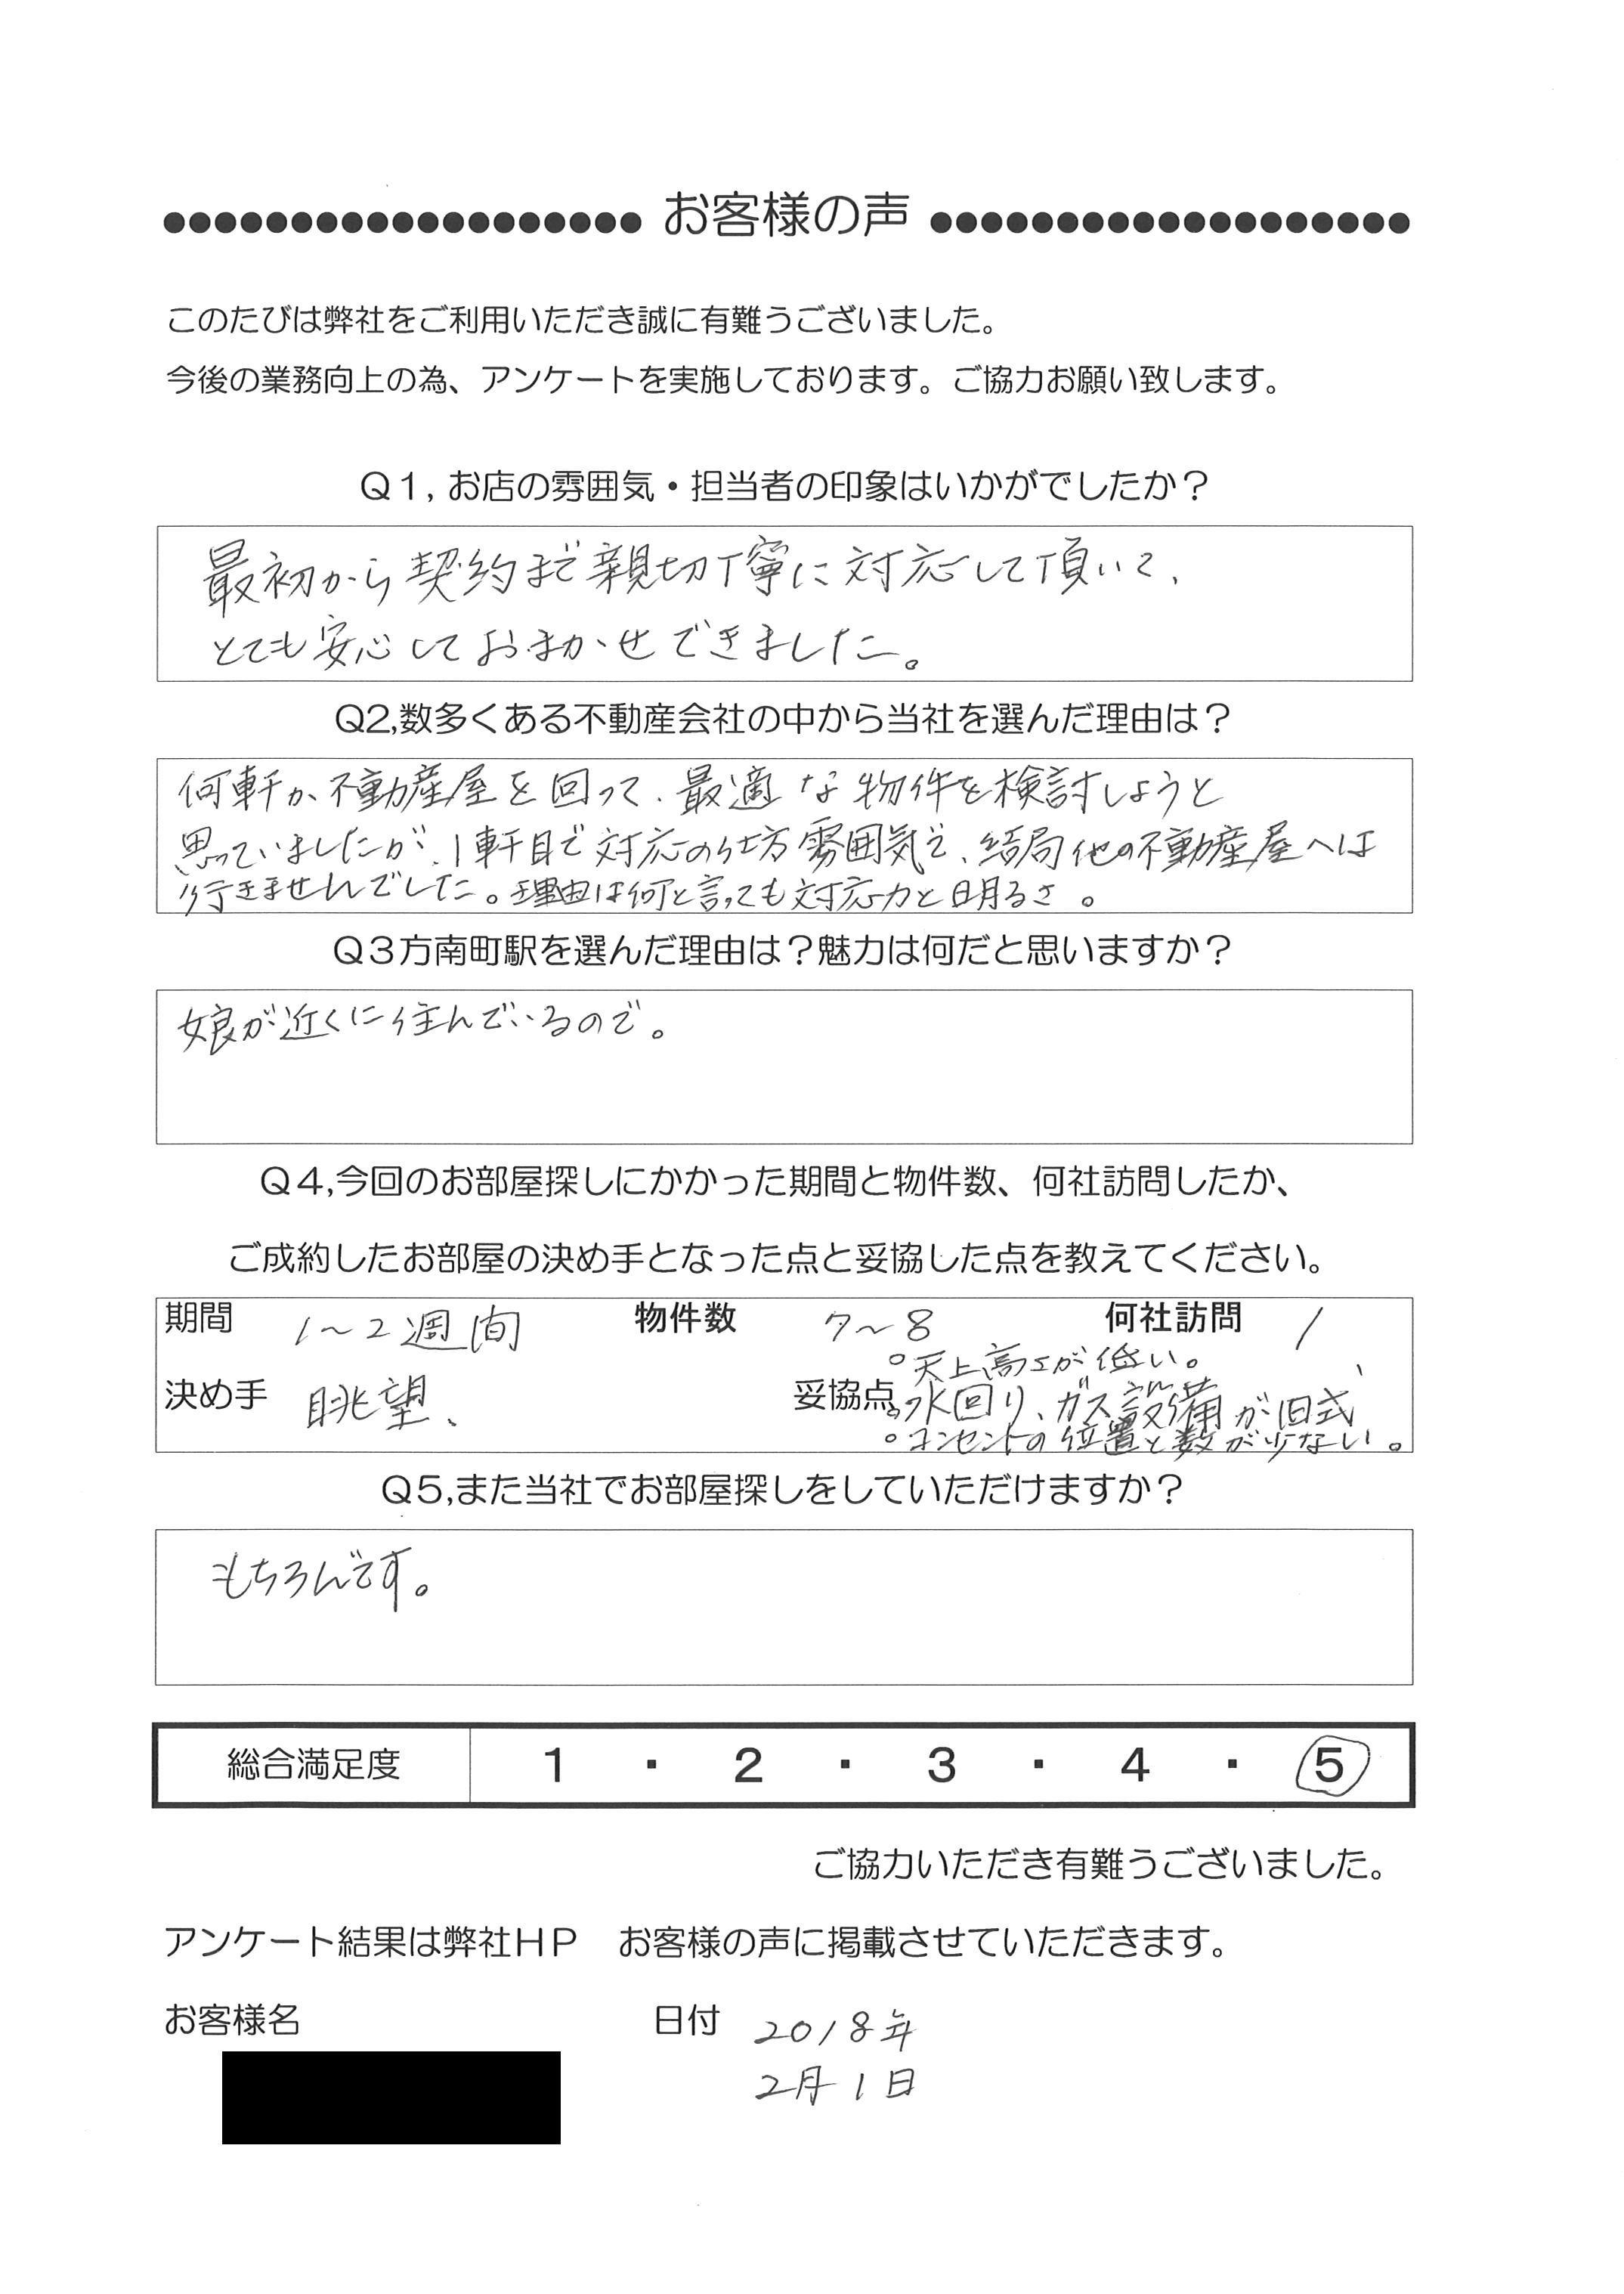 ●●●●●●●●●●●●●●●●●●● お客様の声 ●●●●●●●●●●●●●●●●●●●
このたびは弊社をご利用いただき誠に有難うございました。
今後の業務向上の為、アンケートを実施しております。ご協力お願い致します。
Q1, お店の雰囲気・担当者の印象はいかがでしたか?
最初から契約まで親切丁寧に対応して頂いて、
とても安心しておまかせできました。
Q2,数多くある不動産会社の中から当社を選んだ理由は?
何軒か不動産屋を回って、最適な物件を検討しようと
思っていましたが、1軒目で対応の仕方雰囲気で、結局他の不動産屋へは
行きませんでした。理由は何と言っても対応力と明るさ。
Q3方南町駅を選んだ理由は?魅力は何だと思いますか?
娘が近くに住んでいるので。
Q4,今回のお部屋探しにかかった期間と物件数、何社訪問したか、
ご成約したお部屋の決め手となった点と妥協した点を教えてください。
期間 1～2週間 物件数 7～8 何社訪問 1
決め手 眺望、 妥協点 。天上高さが低い。
。水回り、ガス設備が旧式、
。コンセントの位置と数が少ない。
Q5,また当社でお部屋探しをしていただけますか?
もちろんです。
総合満足度 1 ・ 2 ・ 3 ・ 4 ・ 5
ご協力いただき有難うございました。
アンケート結果は弊社HP お客様の声に掲載させていただきます。
お客様名 日付 2018年
2月1日